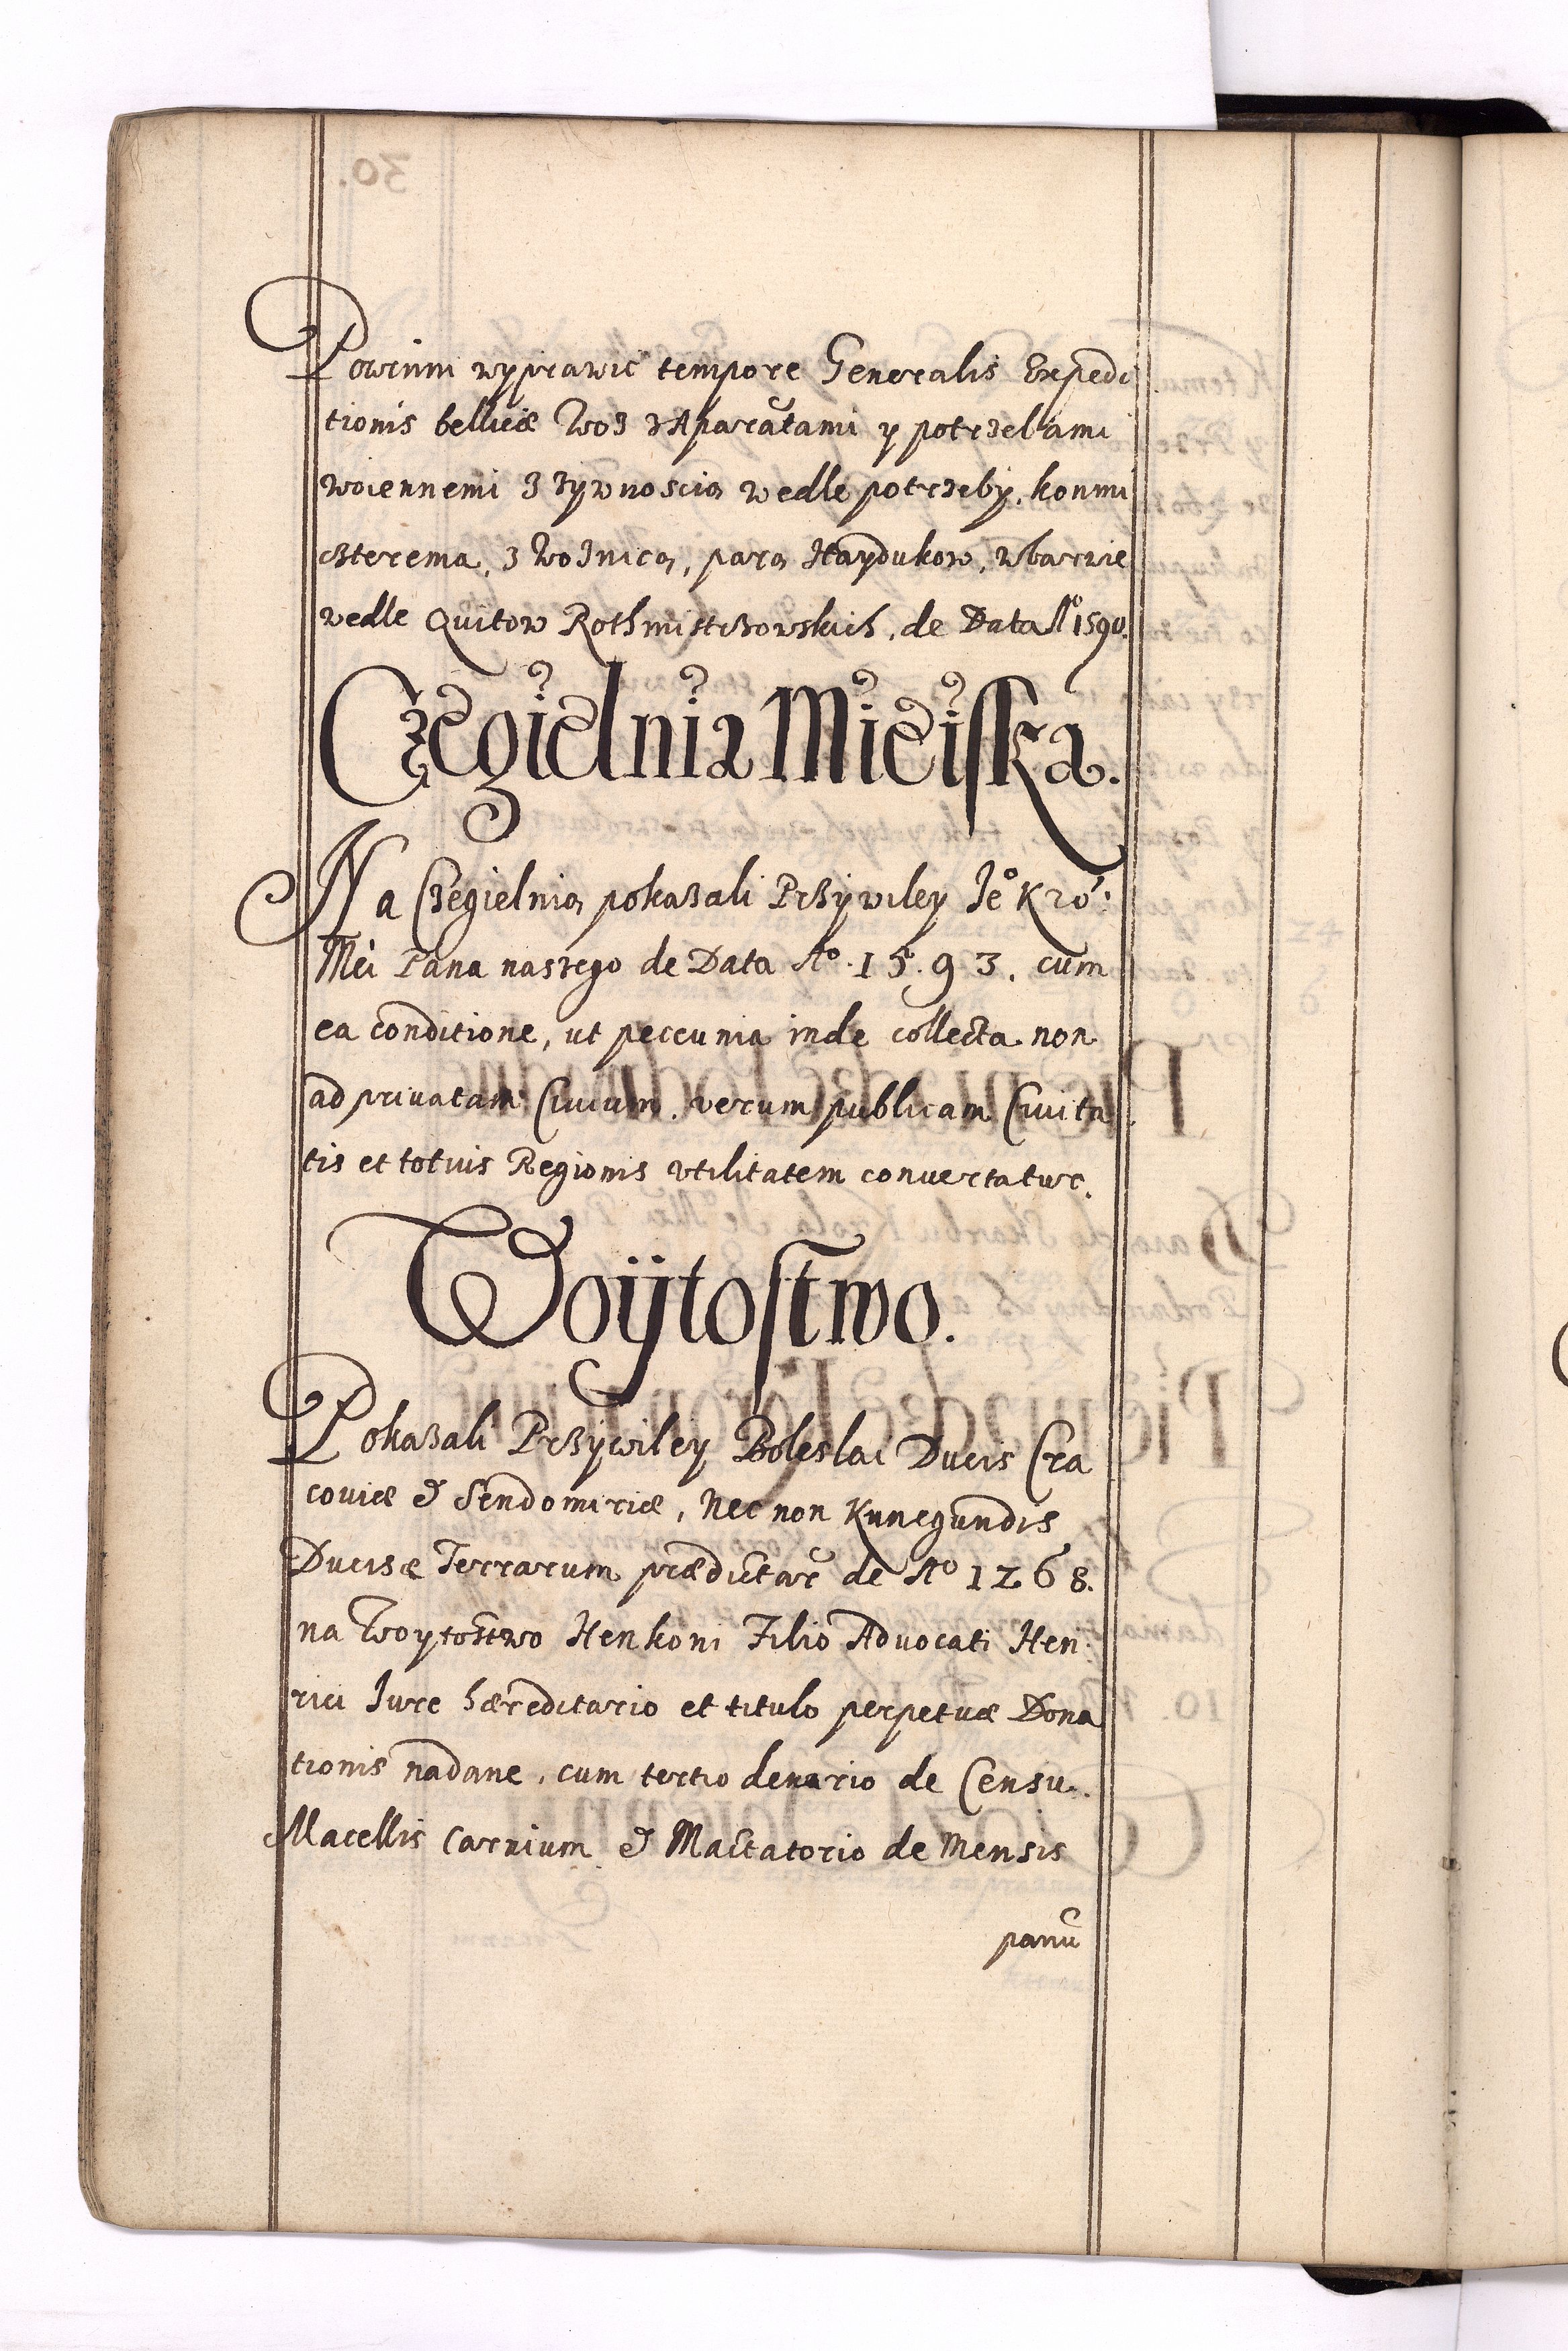 Powinni wyprawic tempore Generalis Expedi
tionis bellicæ Woz z Aparatami y potrzebami
woiennemi z zywnoscią wedle potrzeby, konmi
czterema, z Woznicą, parą Haydukow, w barwie
wedle Quitow Rothmistrzowskich, de Data Aº 1590.
Czegielnia Mieiska.
Na Czegielnią pokazali Przywiley Jeº Kró:
Mći Pana naszego de Data Aº. 1593. cum
ea conditione, ut peccunia inde collecta non
ad priuatam Ciuium, verum publicam Ciuita
tis et totius Regionis vtilitatem conuertatur.
Woÿtostwo.
Pokazali Przywiley Boleslai Ducis Cra
couiæ & Sendomiriæ, Nec non Kunegundis
Ducisæ Terrarum prædictar de Aº 1268.
na Woytostwo Henkoni Filio Advocati Hen:
rici Jure hæreditario et titulo perpetuæ Dona
tionis nadane, cum tertio denario de Censu.
Macellis Carnium & Mactatorio de Mensis
panu